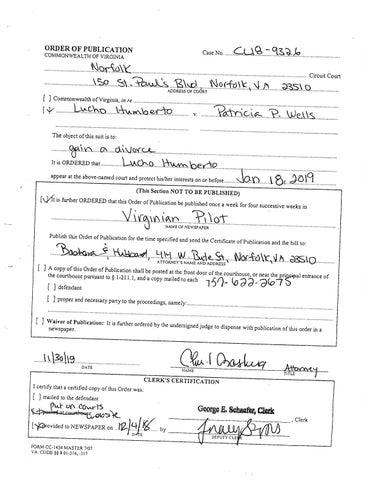 ORDER OF PUBLICATION
COMMONWEALTH OF VIRGINIA
Case No. CL18-9326
Norfolk Circuit Court
150 St. Paul's Blvd, Norfolk, VA 23510
ADDRESS OF COURT
[ ] Commonwealth of Virginia, in re
[✓] Lucho Humberto v. Patricia P. Wells
The object of this suit is to:
gain a divorce
It is ORDERED that Lucho Humberto
appear at the above-named court and protect his/her interests on or before Jan 18, 2019
(This Section NOT TO BE PUBLISHED)
[✓] It is further ORDERED that this Order of Publication be published once a week for four successive weeks in
Virginian Pilot
NAME OF NEWSPAPER
Publish this Order of Publication for the time specified and send the Certificate of Publication and the bill to:
& Hubbard, 414 W. Bute St, Norfolk, VA 23510
ATTORNEY'S NAME AND ADDRESS
757-622-2675
[ ] A copy of this Order of Publication shall be posted at the front door of the courthouse, or near the principal entrance of
the courthouse pursuant to § 1-211.1, and a copy mailed to each
[ ] defendant
[ ] proper and necessary party to the proceedings, namely:
[ ] Waiver of Publication: It is further ordered by the undersigned judge to dispense with publication of this order in a
newspaper.
11/30/19
DATE
NAME
Attorney
TITLE
CLERK'S CERTIFICATION
I certify that a certified copy of this Order was:
[ ] mailed to the defendant
put on courts
website
George E. Schaefer, Clerk
, Clerk
[✓] provided to NEWSPAPER on 12/4/18 by
DATE
DEPUTY CLERK
FORM CC-1454 MASTER 7/07
VA. CODE §§ 8.01-316, -317